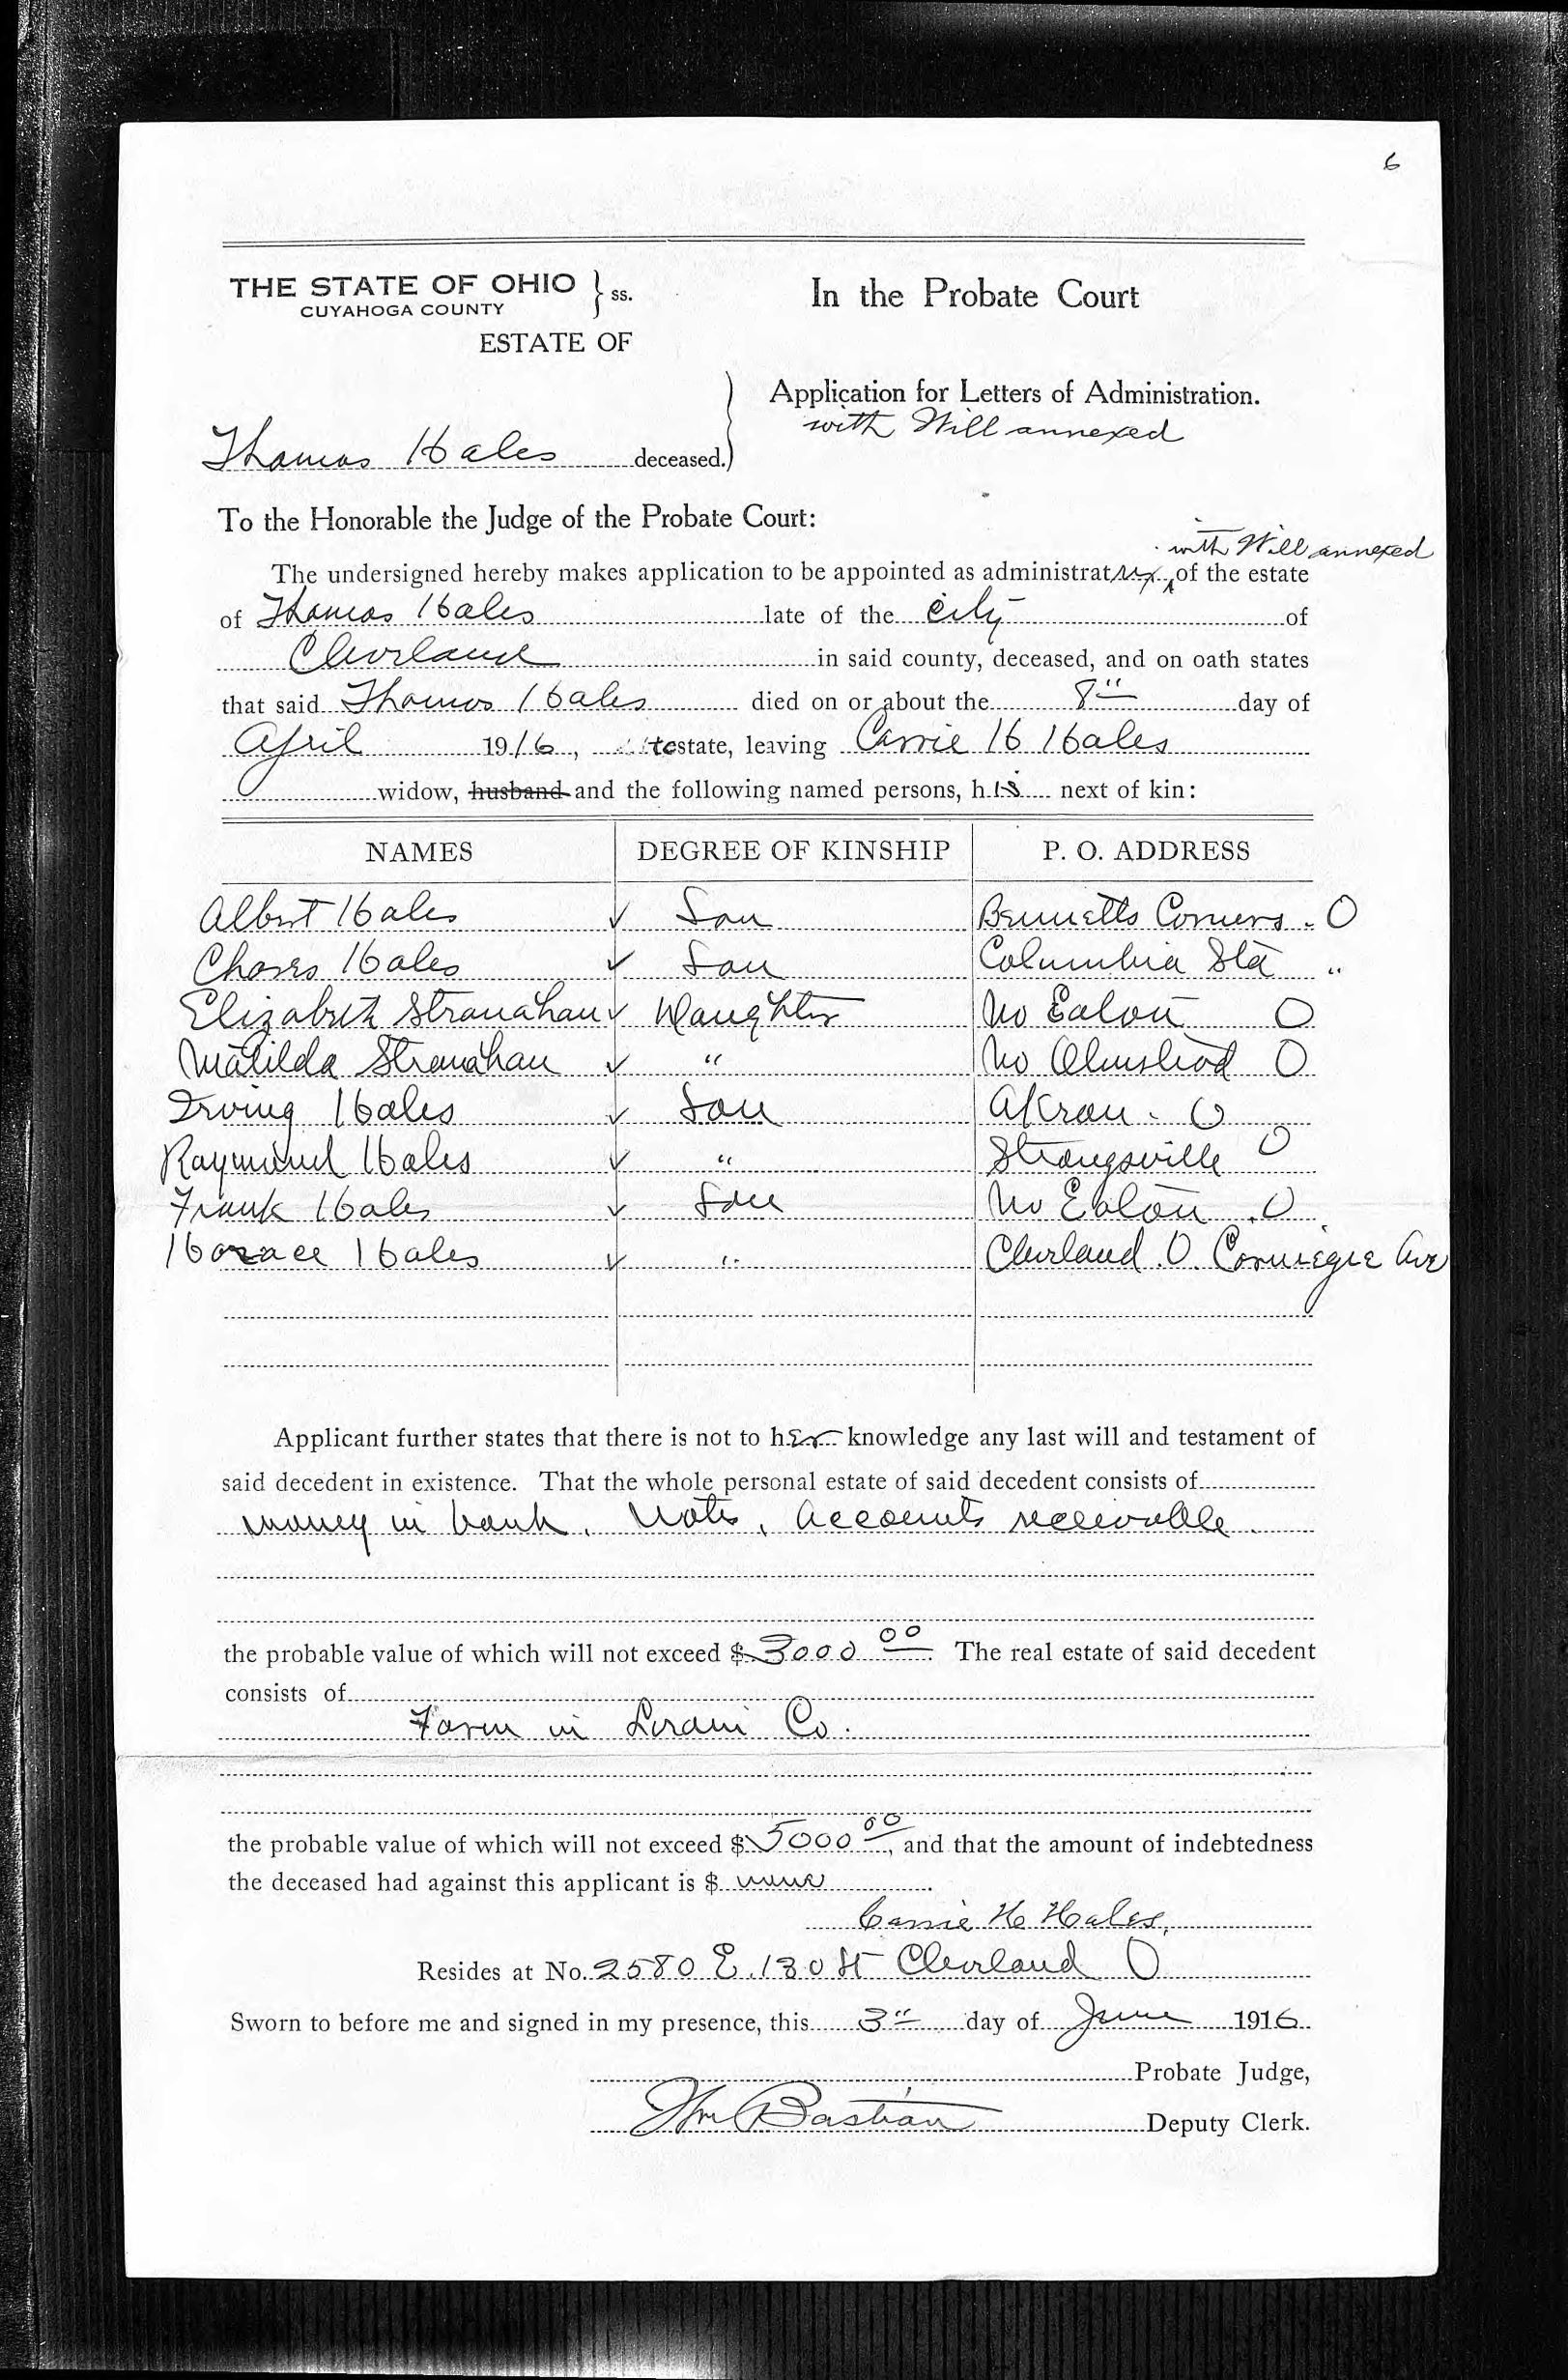 6
THE STATE OF OHIO } ss.
CUYAHOGA COUNTY
In the Probate Court
ESTATE OF
Application for Letters of Administration.
with Will annexed
Thomas Hales deceased.)
To the Honorable the Judge of the Probate Court:
with Will annexed
The undersigned hereby makes application to be appointed as administratrix of the estate
of Thomas Hales late of the City of
Cleveland in said county, deceased, and on oath states
that said Thomas Hales died on or about the 8" day of
April 1916, testate, leaving Carrie H Hales
widow, husband and the following named persons, his next of kin:
NAMES DEGREE OF KINSHIP P. O. ADDRESS
Albert Hales ✓ Son Bennetts Corners. O
Charles Hales ✓ Son Columbia Sta "
Elizabeth Stranahan ✓ Daughter No Eaton O
Matilda Stranahan ✓ " No Olmsted O
Irving Hales ✓ Son Akron. O
Raymond Hales ✓ " Strongsville O
Frank Hales ✓ Son No Eaton. O
Horace Hales ✓ " Cleveland. O. Carnegie Ave
Applicant further states that there is not to her knowledge any last will and testament of
said decedent in existence. That the whole personal estate of said decedent consists of
money in bank, Notes, Accounts receivable
the probable value of which will not exceed $3000 00 The real estate of said decedent
consists of
Farm in Lorain Co.
the probable value of which will not exceed $5000 00, and that the amount of indebtedness
the deceased had against this applicant is $ none
Carrie H Hales,
Resides at No. 2580 E. 130 St Cleveland O
Sworn to before me and signed in my presence, this 3" day of June 1916
Probate Judge,
Wm Bastian Deputy Clerk.